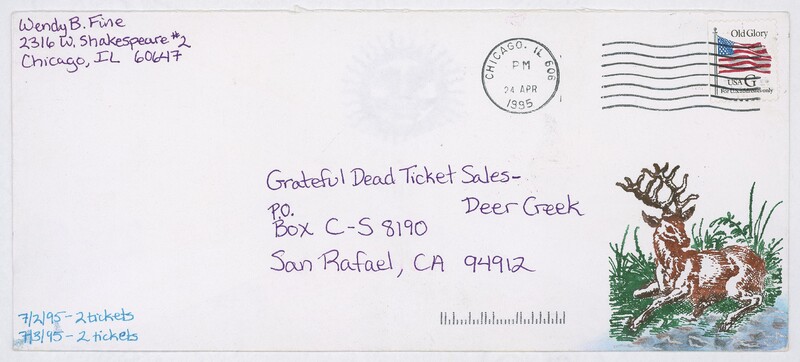 Wendy B. Fine
2316 W. Shakespeare #2
Chicago, IL 60647
CHICAGO, IL 606
PM
24 APR
1995
Old Glory
USA G
For U.S. addresses only
Grateful Dead Ticket Sales-
P.O. Deer Creek
Box C-S 8190
San Rafael, CA 94912
7/2/95 - 2 tickets
7/3/95 - 2 tickets